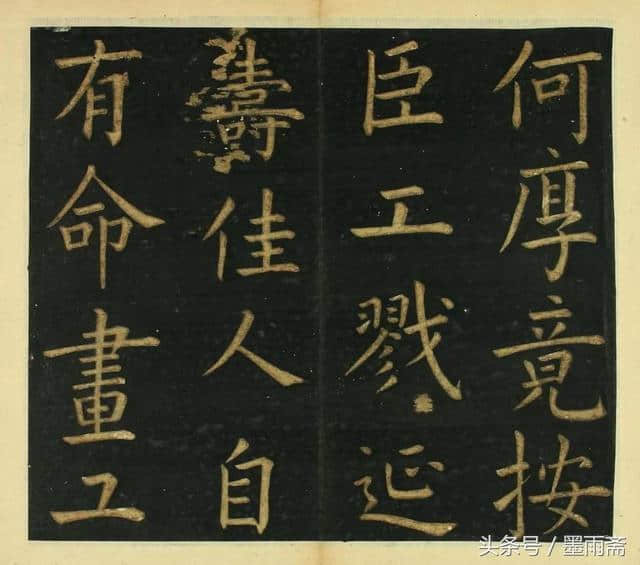 何厚竟按
臣工戮延
壽佳人自
有命畫工
头条号 / 墨雨斋